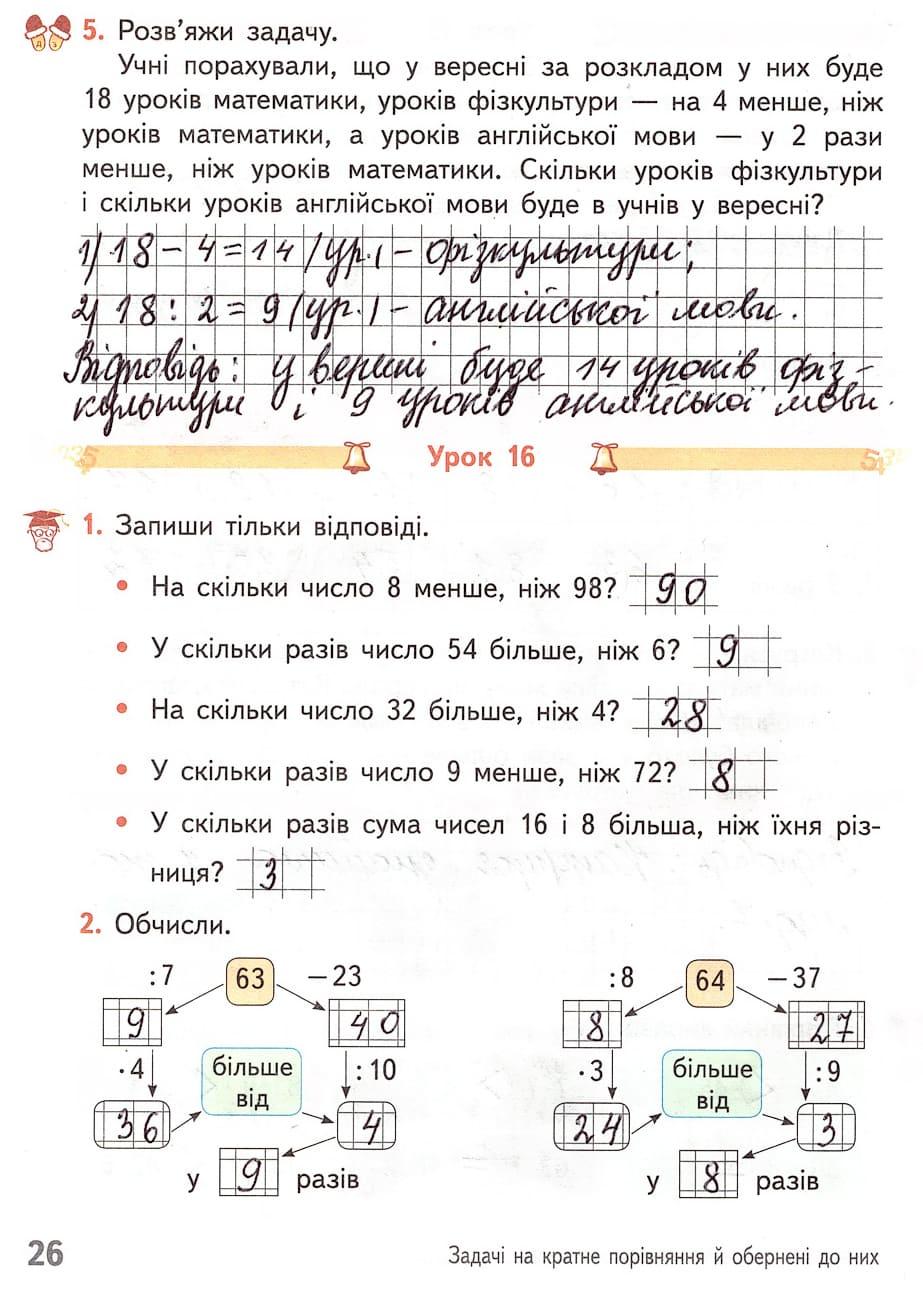 5. Розв’яжи задачу.
Учні порахували, що у вересні за розкладом у них буде
18 уроків математики, уроків фізкультури — на 4 менше, ніж
уроків математики, а уроків англійської мови — у 2 рази
менше, ніж уроків математики. Скільки уроків фізкультури
і скільки уроків англійської мови буде в учнів у вересні?
1) 18 – 4 = 14 (ур.) – фізкультури;
2) 18 : 2 = 9 (ур.) – англійської мови.
Відповідь: у вересні буде 14 уроків фіз-
культури і 9 уроків англійської мови.
Урок 16
1. Запиши тільки відповіді.
• На скільки число 8 менше, ніж 98? 90
• У скільки разів число 54 більше, ніж 6? 9
• На скільки число 32 більше, ніж 4? 28
• У скільки разів число 9 менше, ніж 72? 8
• У скільки разів сума чисел 16 і 8 більша, ніж їхня різ-
ниця? 3
2. Обчисли.
:7 63 –23 :8 64 –37
9 40 8 27
·4 більше від :10 ·3 більше від :9
36 4 24 3
у 9 разів у 8 разів
26 Задачі на кратне порівняння й обернені до них